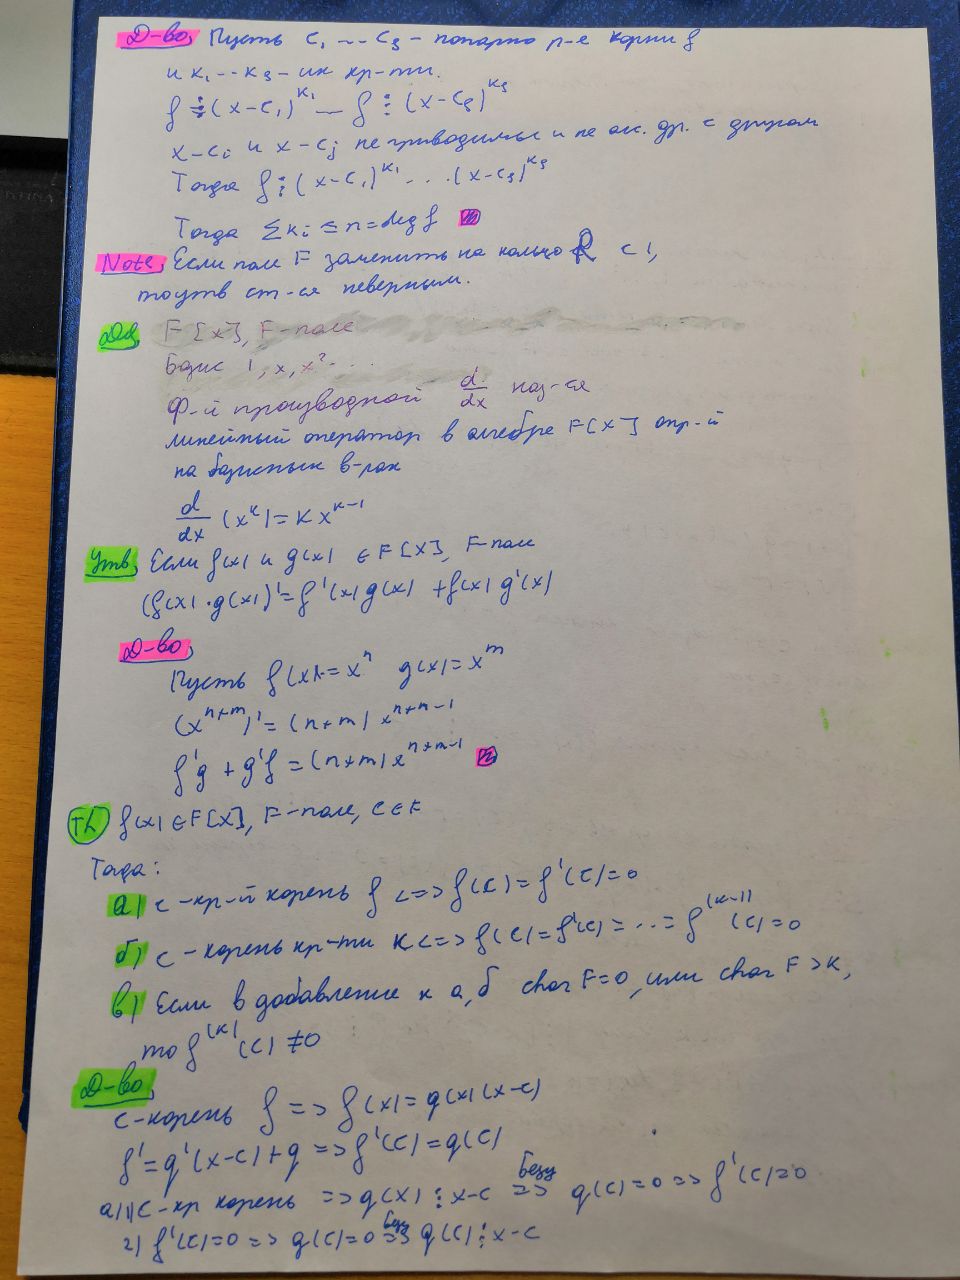 Д-во, Пусть c₁ ... c₃ - попарно р-е корни f
и k₁ ... k₃ - их кр-ти.
f ⋮ (x-c₁)^k₁ ... f ⋮ (x-c₃)^k₃
x-cᵢ и x-cⱼ неприводимые и не ас. др. с другом
Тогда f ⋮ (x-c₁)^k₁ ... (x-c₃)^k₃
Тогда ∑kᵢ ≤ n = deg f
Note, Если поле F заменить на кольцо R с 1,
то утв ст-ся неверным.
F[x], F-поле
Базис 1, x, x² ...
Ф-й производной d/dx наз-ся
линейный оператор в алгебре F[x] опр-й
на базисных в-рах
d/dx (x^k) = k x^(k-1)
Утв Если f(x) и g(x) ∈ F[x], F-поле
(f(x)·g(x))' = f'(x)g(x) + f(x)g'(x)
Д-во,
Пусть f(x) = x^n g(x) = x^m
(x^(n+m))' = (n+m) x^(n+m-1)
f'g + g'f = (n+m)x^(n+m-1)
Th f(x) ∈ F[x], F-поле, c ∈ F
Тогда:
а) c - кр-й корень f <=> f(c) = f'(c) = 0
б) c - корень кр-ти k <=> f(c) = f'(c) = ... = f^(k-1)(c) = 0
в) Если в добавление к а, б char F = 0, или char F > k,
то f^(k)(c) ≠ 0
Д-во,
c-корень f => f(x) = q(x)(x-c)
f' = q'(x-c) + q => f'(c) = q(c)
а) 1) c-кр корень => q(x) ⋮ x-c =Безу=> q(c) = 0 => f'(c) = 0
2) f'(c) = 0 => q(c) = 0 =Безу=> q(c) ⋮ x-c